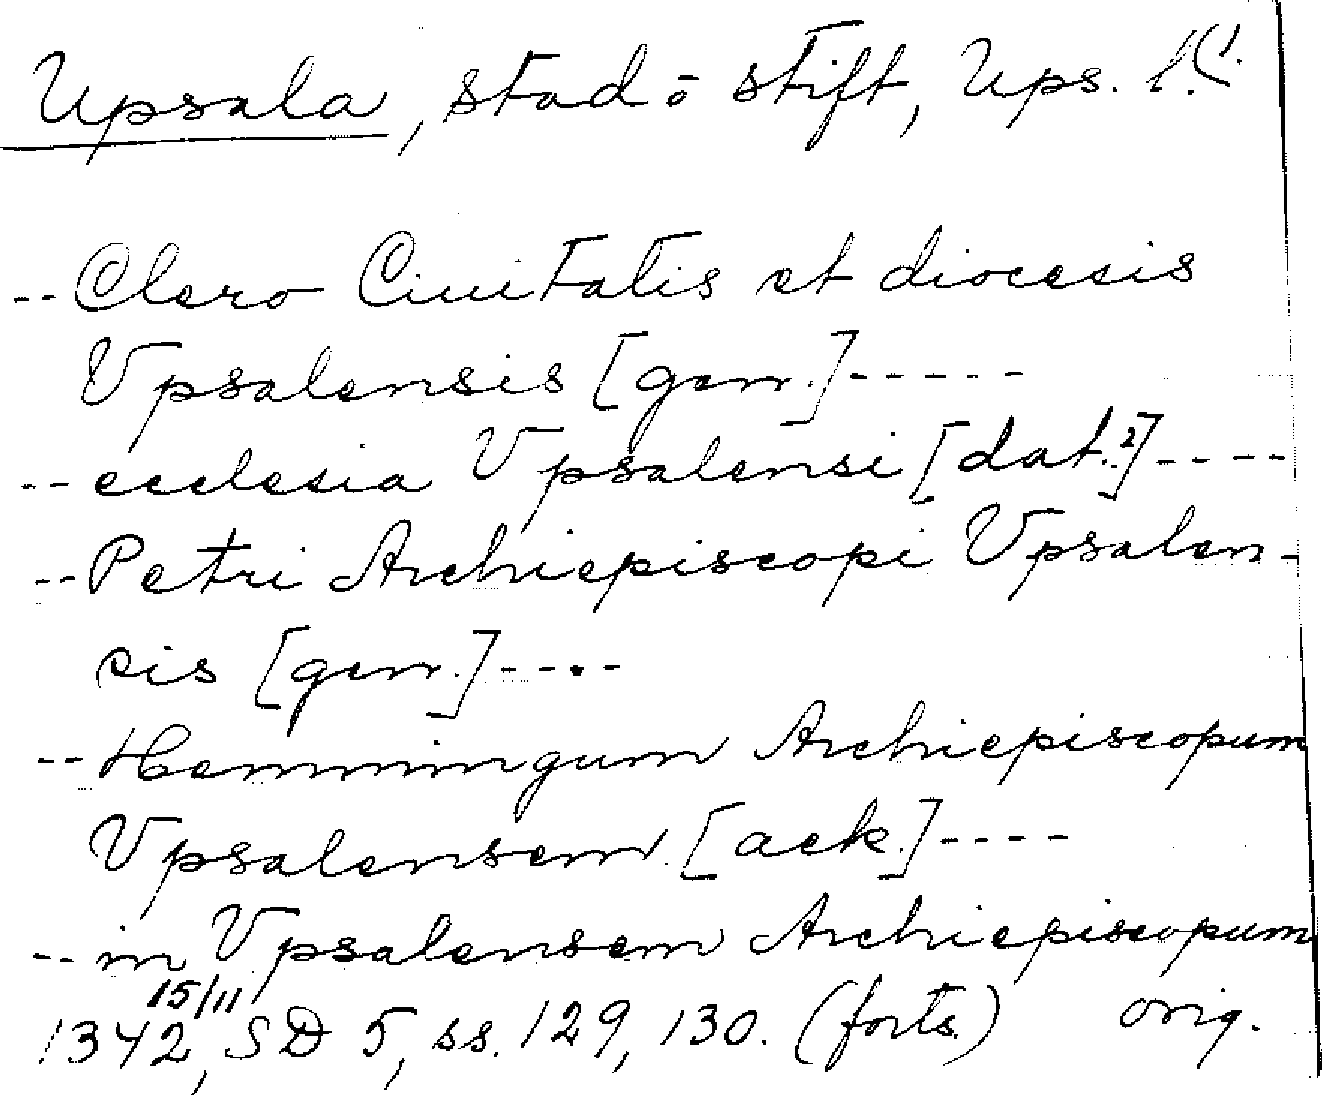 Upsala, stad o stift, Ups. l.
-- Clero Ciuitatis et diocesis
Vpsalensis [gen.] -----
-- ecclesia Vpsalensi [dat.?] ----
-- Petri Archiepiscopi Vpsalen-
sis [gen.] ----
-- Hemmingum Archiepiscopum
Vpsalensem [ack.] ----
-- in Vpsalensem Archiepiscopum
1342 15/11, SD 5, ss. 129, 130. (forts.) orig.